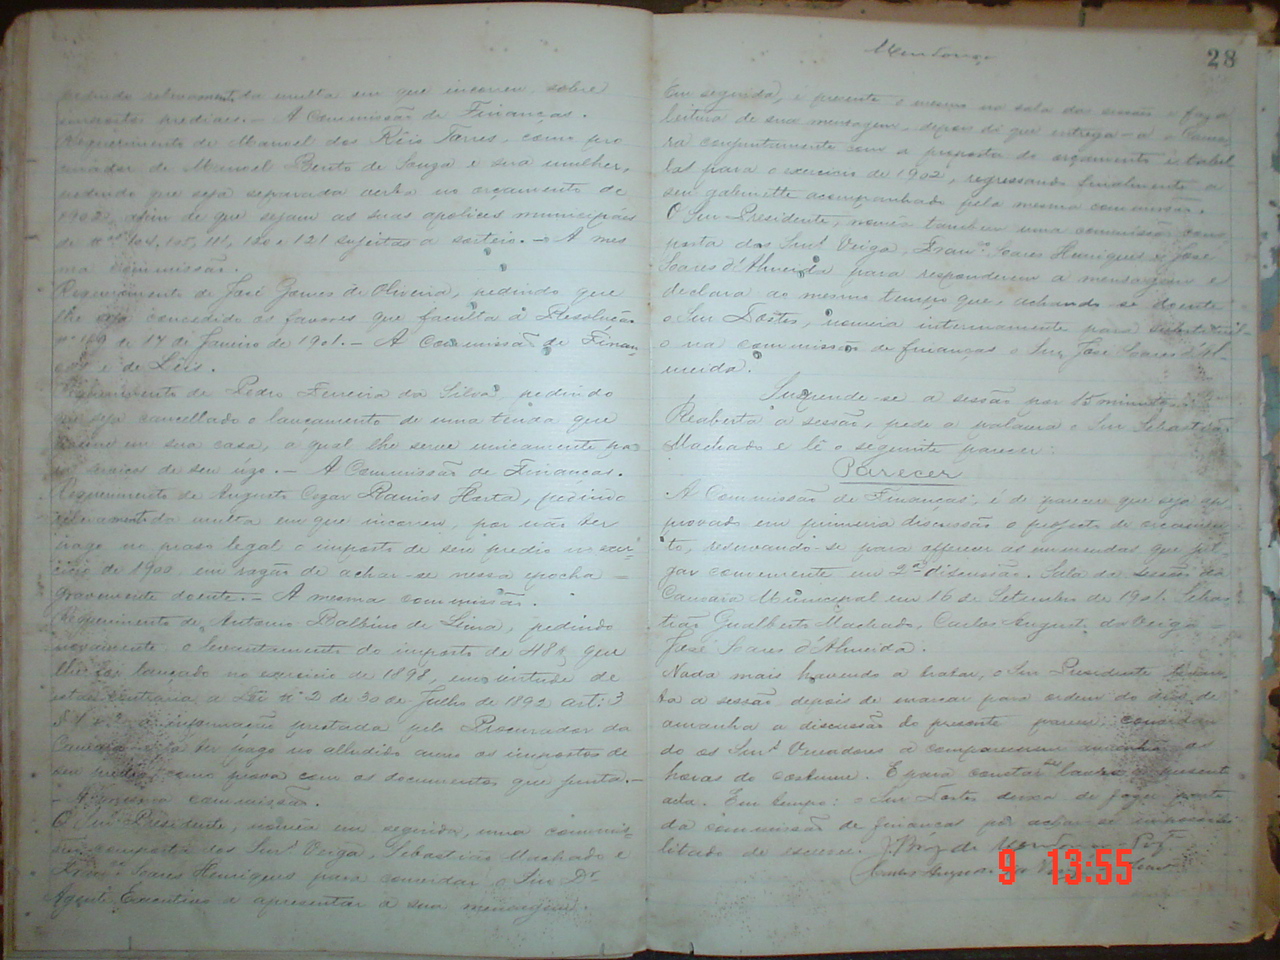 pedindo relevamento da multa em que incorreu sobre
impostos prediaes. — A Commissão de Finanças.
Requerimento de Manoel dos Reis Torres, como pro
curador de Manoel Bento de Souza e sua mulher,
pedindo que seja separada verba no orçamento de
1902, afim de que sejam as suas apolices municipáes
de nos 104, 105, 111, 120 e 121 sujeitas a sorteio. — A mes
ma commissão.
Requerimento de José Gomes de Oliveira, pedindo que
lhe seja concedido os favores que faculta a Resolução
nº de 14 de Janeiro de 1901. — A Commissão de Finan
ças e de Leis.
Requerimento de Pedro Ferreira da Silva, pedindo
seja cancellado o lançamento de uma tenda que
em sua casa, a qual lhe serve unicamente pa
ra serviços de seu uzo. — A Commissão de Finanças.
Requerimento de Augusto Cezar Ramos Horta, pedindo
relevamento da multa em que incorreu, por não ter
pago no praso legal o imposto de seu predio no exer
cicio de 1900 em razão de achar-se nessa epocha —
gravemente doente. — A mesma commissão.
Requerimento de Antonio Balbino de Lima, pedindo
novamente o levantamento do imposto de 48$, que
lhe foi lançado no exercicio de 1898, em virtude de
estar contraria a Lei nº 2 de 30 de Julho de 1892 art: 3
§ 1 a informação prestada pelo Procurador da
Camara ter pago no alludido anno os impostos de
seu predio, como prova com os documentos que junta. —
— A mesma commissão.
O Snr. Presidente, nomeia em seguida, uma commis
são composta dos Snrs Veiga, Sebastião Machado e
Franco Soares Henriques para convidar o Snr Dr
Agente Executivo a apresentar a sua mensagem.
Mendonça
28
Em seguida, é presente o mesmo na sala da sessão e faz a
leitura de sua mensagem, depois do que entrega-a á Cama
ra conjuntamente com a proposta do orçamento e tabel
las para o exercicio de 1902, regressando finalmente a
seu gabinette acompanhado pela mesma commissão.
O Snr. Presidente, nomeia tambem uma commissão com
posta dos Snrs Veiga, Franco Soares Henriques e José
Soares d'Almeida para responderem a mensagem e
declara ao mesmo tempo que, achando-se doente
o Snr Dortes, nomeia interinamente para substituil-
o na commissão de finanças o Snr José Soares d'Al
meida.
Suspende-se a sessão por 15 minutos.
Reaberta a sessão, pede a palavra o Snr Sebastião
Machado e lê o seguinte parecer:
Parecer
A Commissão de Finanças, é de parecer que seja ap
provado em primeira discussão o projecto de orçamen
to, reservando-se para offerecer as emmendas que jul
gar conveniente em 2ª discussão. Sala das sessões da
Camara Municipal em 16 de Setembro de 1901. Sebas
tião Gualberto Machado, Carlos Augusto da Veiga —
José Soares d'Almeida.
Nada mais havendo a tratar, o Snr Presidente levan
ta a sessão depois de marcar para ordem do dia de
amanhã a discussão do presente parecer, convidan
do os Snrs Vereadores a comparecerem amanhã as
horas do costume. E para constar lavro a present
acta. Em tempo: o Snr Dortes deixa de fazer parte
da commissão de finanças por achar-se impossibi
litado de escrever.
9 13:55